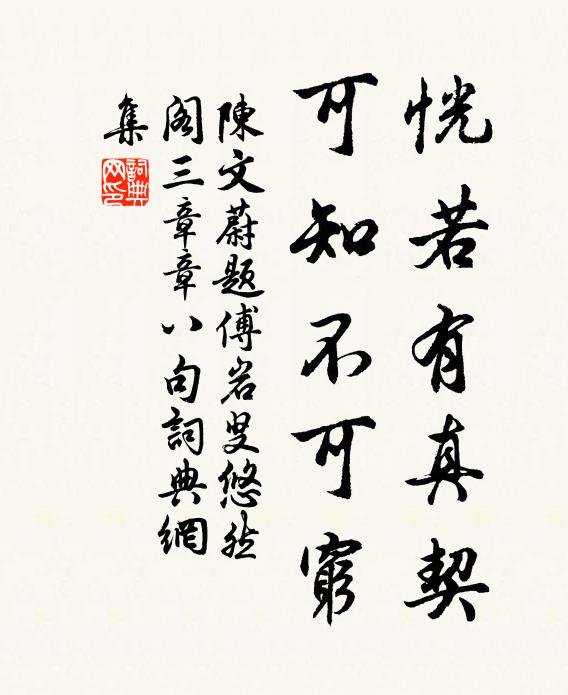 恍若有真契
可知不可窮
陳文蔚题傅岩叟悠然
阁三章章八句詞典網
集
詞典
网印